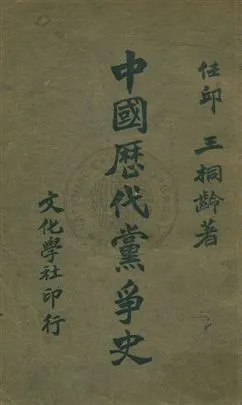 任邱 王桐齡著
中國歷代黨爭史
文化學社印行